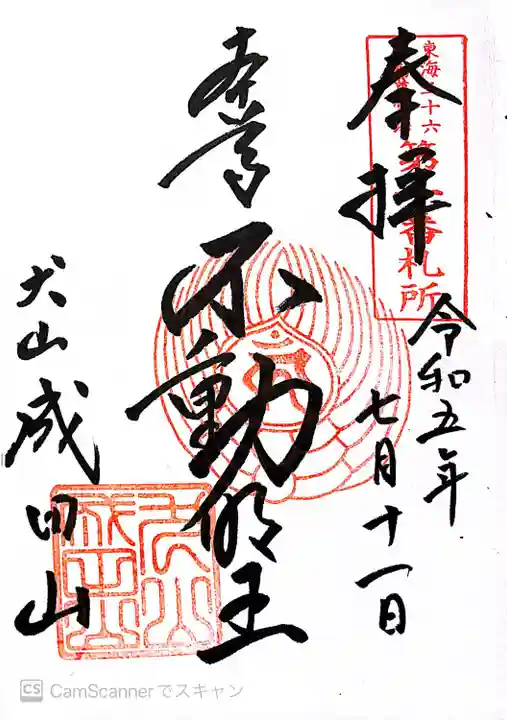 奉拝
東海三十六
第一番札所
令和五年
七月十一日
本尊
不動明王
犬山成田山
CS CamScannerでスキャン